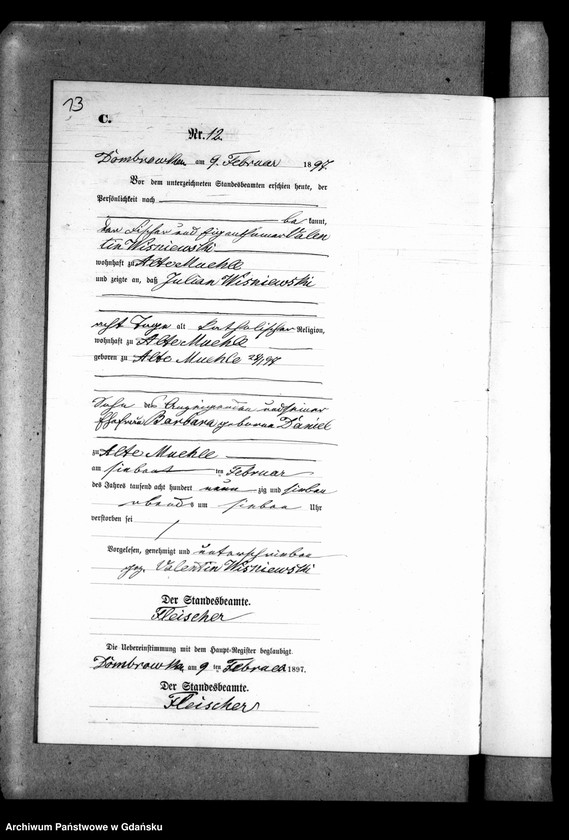 13
C.
Nr. 12.
Dombrowken am 9. Februar 1897.
Vor dem unterzeichneten Standesbeamten erschien heute, der
Persönlichkeit nach
be kannt,
der Fischer und Eigenthümer Valen
tin Wisniewski
wohnhaft zu Alte Muehle
und zeigte an, daß Julian Wisniewski
acht Tage alt katholischer Religion,
wohnhaft zu Alte Muehle
geboren zu Alte Muehle
Sohn des Angezeigenden und seiner
Ehefrau Barbara geborene Daniel
zu Alte Muehle
am siebenten Februar
des Jahres tausend acht hundert neun zig und sieben
abends um sieben Uhr
verstorben sei
Vorgelesen, genehmigt und unterschrieben
gez. Valentin Wisniewski
Der Standesbeamte.
Fleischer
Die Uebereinstimmung mit dem Haupt-Register beglaubigt.
Dombrowken am 9 ten Februar 1897.
Der Standesbeamte.
Fleischer
Archiwum Państwowe w Gdańsku